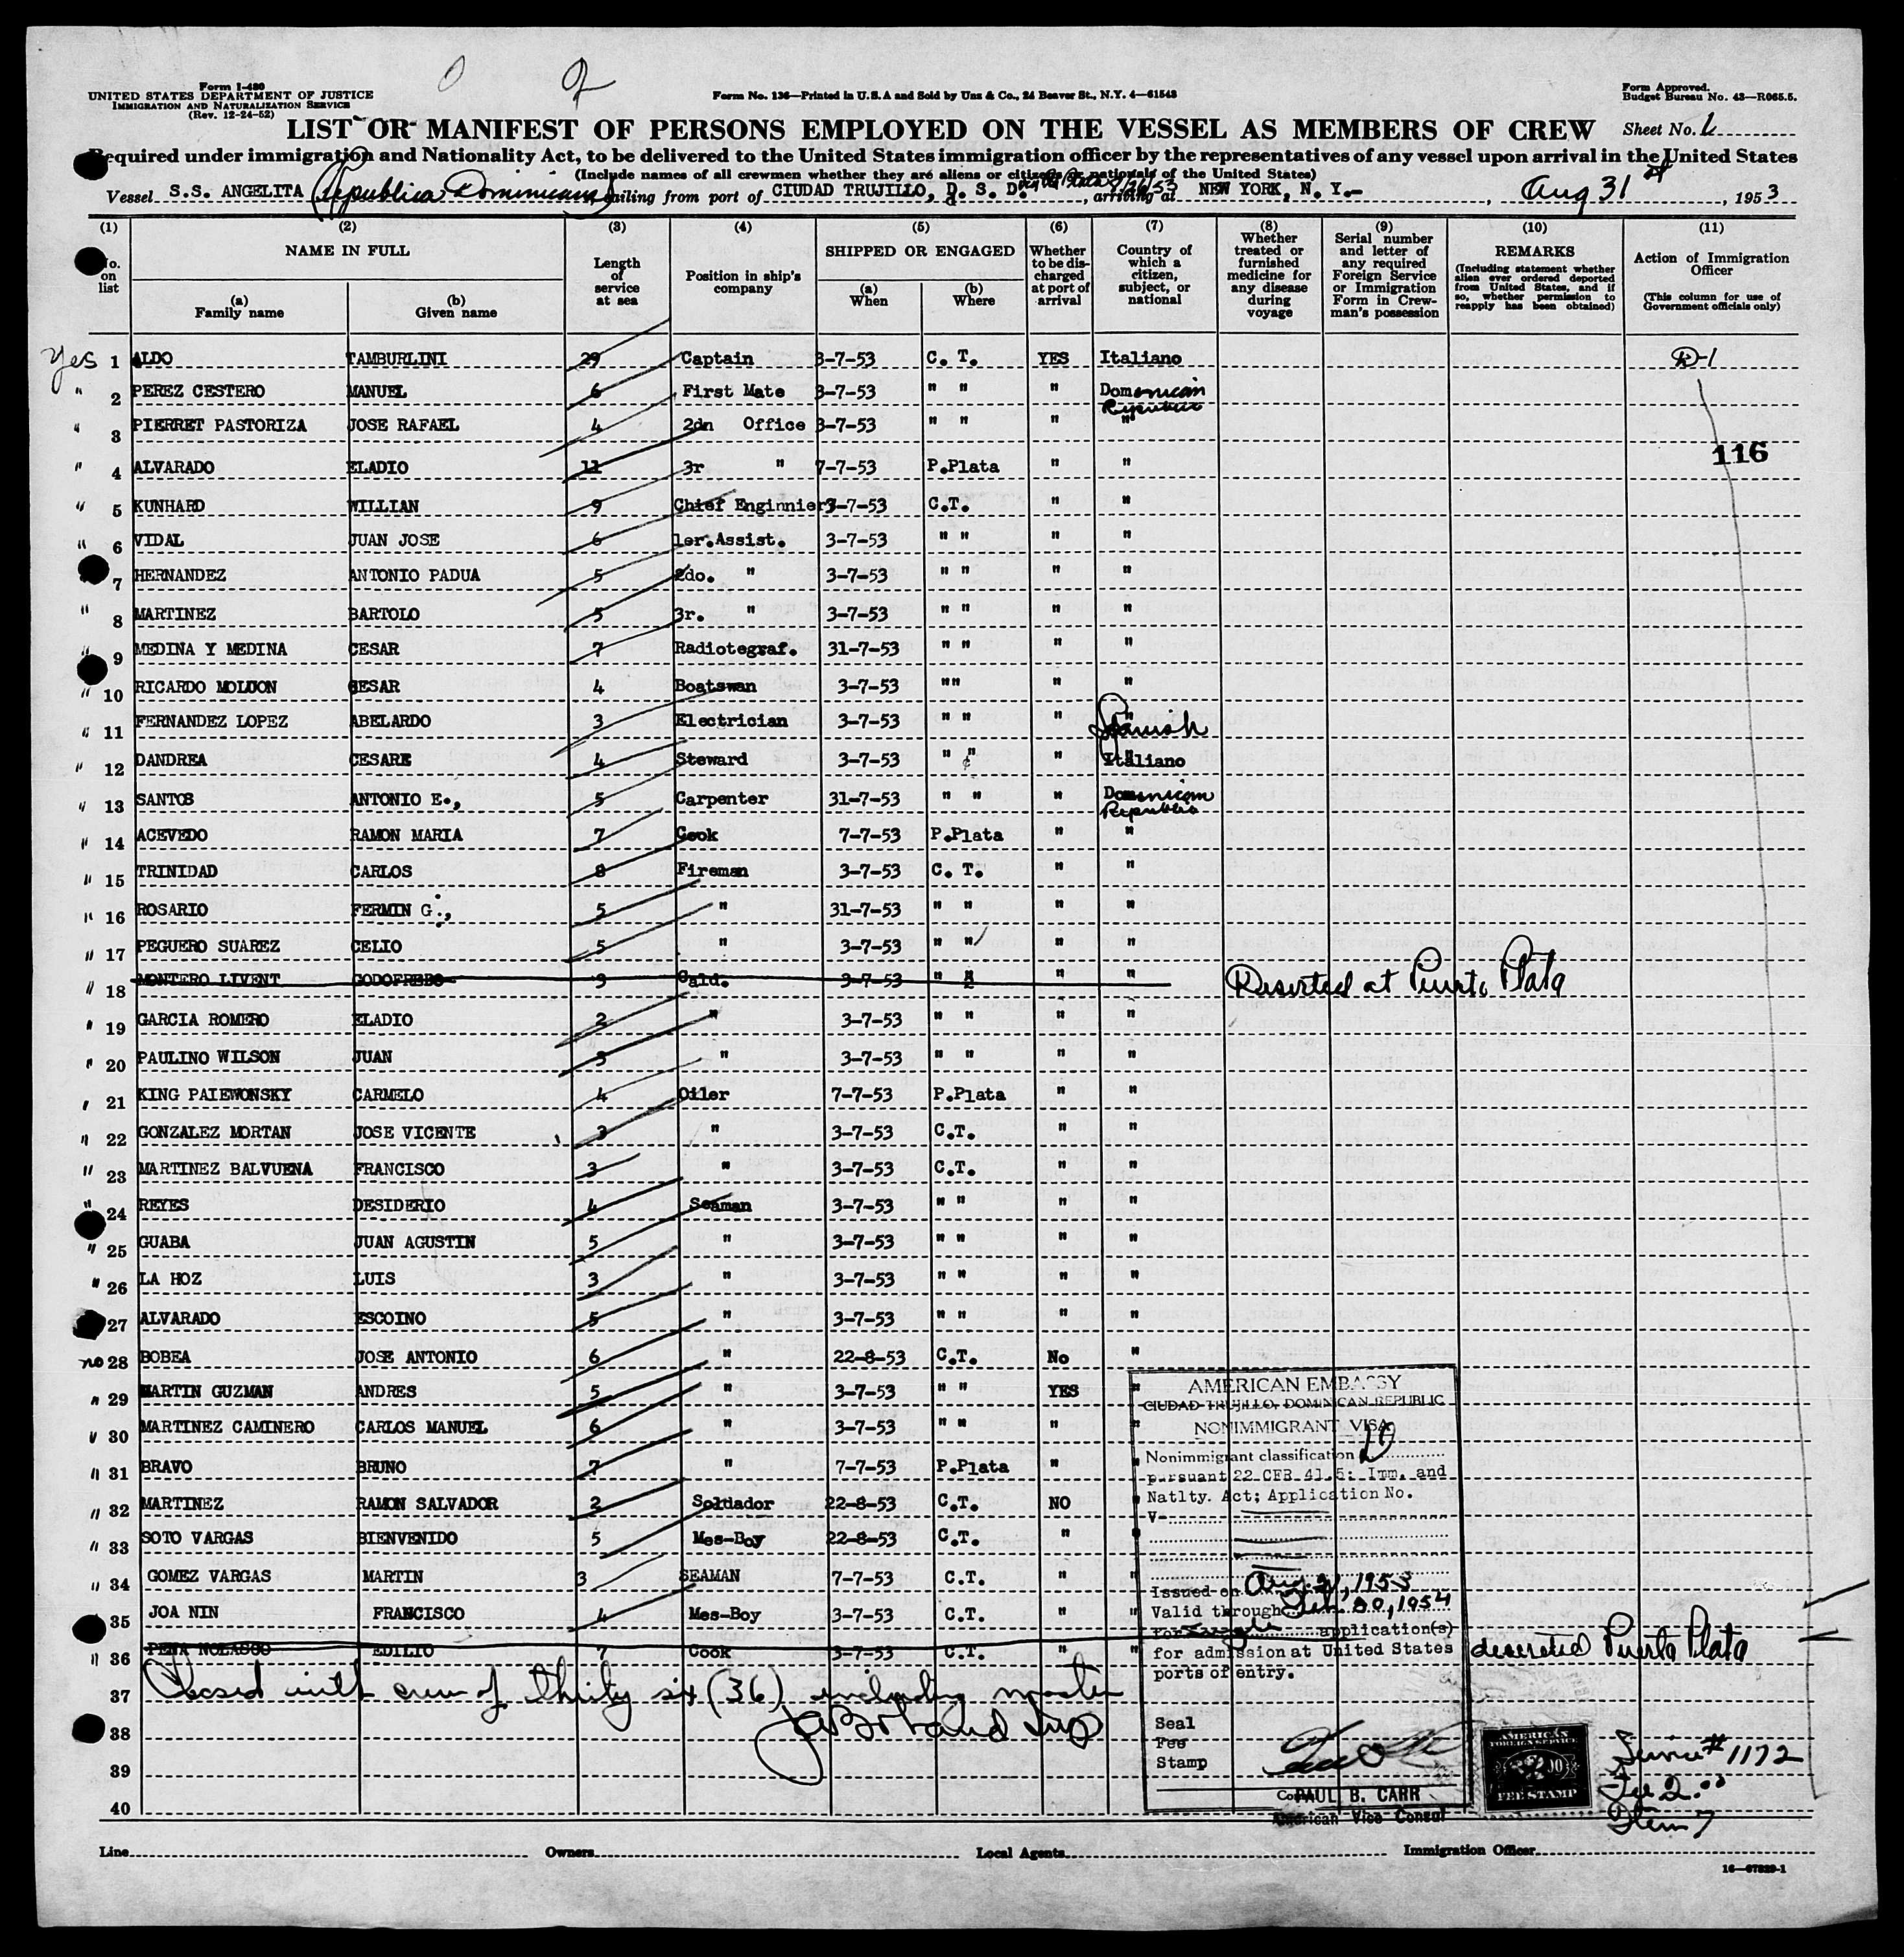 Form I-480
UNITED STATES DEPARTMENT OF JUSTICE
IMMIGRATION AND NATURALIZATION SERVICE
(Rev. 12-24-52)
Form No. 136—Printed in U.S.A and Sold by Unz & Co., 24 Beaver St., N.Y. 4—61548
Form Approved.
Budget Bureau No. 43—R065.5.
LIST OR MANIFEST OF PERSONS EMPLOYED ON THE VESSEL AS MEMBERS OF CREW
Sheet No. 1
Required under immigration and Nationality Act, to be delivered to the United States immigration officer by the representatives of any vessel upon arrival in the United States
(Include names of all crewmen whether they are aliens or citizens or nationals of the United States)
Vessel S.S. ANGELITA (Republica Dominicana) sailing from port of CIUDAD TRUJILLO, D. S. D. Puerto Plata 8/26/53, arriving at NEW YORK, N. Y.- , Aug 31 st , 1953
(1) (2) (3) (4) (5) (6) (7) (8) (9) (10) (11)
No. on list
NAME IN FULL
(a) Family name
(b) Given name
Length of service at sea
Position in ship's company
SHIPPED OR ENGAGED
(a) When
(b) Where
Whether to be discharged at port of arrival
Country of which a citizen, subject, or national
Whether treated or furnished medicine for any disease during voyage
Serial number and letter of any required Foreign Service or Immigration Form in Crewman's possession
REMARKS
(Including statement whether alien ever ordered deported from United States, and if so, whether permission to reapply has been obtained)
Action of Immigration Officer
(This column for use of Government officials only)
Yes 1 ALDO TAMBURLINI 29 Captain 3-7-53 C. T. YES Italiano D-1
" 2 PEREZ CESTERO MANUEL 6 First Mate 3-7-53 " " " Dominican Republic
" 3 PIERRET PASTORIZA JOSE RAFAEL 4 2dn Office 3-7-53 " " " "
116
" 4 ALVARADO ELADIO 11 3r " 7-7-53 P.Plata " "
" 5 KUNHARD WILLIAN 9 Chief Enginnier 3-7-53 C.T. " "
" 6 VIDAL JUAN JOSE 6 1er.Assist. 3-7-53 " " " "
7 HERNANDEZ ANTONIO PADUA 5 2do. " 3-7-53 " " " "
" 8 MARTINEZ BARTOLO 5 3r. " 3-7-53 " " " "
" 9 MEDINA Y MEDINA CESAR 7 Radiotegraf. 31-7-53 " " " "
" 10 RICARDO MOLUON CESAR 4 Boatswan 3-7-53 "" " "
" 11 FERNANDEZ LOPEZ ABELARDO 3 Electrician 3-7-53 " " " Spanish
" 12 DANDREA CESARE 4 Steward 3-7-53 " " " Italiano
" 13 SANTOS ANTONIO E., 5 Carpenter 31-7-53 " " " Dominican Republic
" 14 ACEVEDO RAMON MARIA 7 Cook 7-7-53 P.Plata " "
" 15 TRINIDAD CARLOS 8 Fireman 3-7-53 C. T. " "
" 16 ROSARIO FERMIN G., 5 " 31-7-53 " " " "
" 17 PEGUERO SUAREZ CELIO 5 " 3-7-53 " " " "
" 18 MONTERO LIVENT GODOFREDO 3 Cald. 3-7-53 " " " Deserted at Puerto Plata
" 19 GARCIA ROMERO ELADIO 2 " 3-7-53 " " " "
" 20 PAULINO WILSON JUAN 3 " 3-7-53 " " " "
" 21 KING PAIEWONSKY CARMELO 4 Oiler 7-7-53 P.Plata " "
" 22 GONZALEZ MORTAN JOSE VICENTE 3 " 3-7-53 C.T. " "
" 23 MARTINEZ BALVUENA FRANCISCO 3 " 3-7-53 C.T. " "
" 24 REYES DESIDERIO 4 Seaman 3-7-53 " " " "
" 25 GUABA JUAN AGUSTIN 5 " 3-7-53 " " " "
" 26 LA HOZ LUIS 3 " 3-7-53 " " " "
27 ALVARADO ESCOINO 5 " 3-7-53 " " " "
no 28 BOBEA JOSE ANTONIO 6 " 22-8-53 C.T. No "
" 29 MARTIN GUZMAN ANDRES 5 " 3-7-53 " " YES "
" 30 MARTINEZ CAMINERO CARLOS MANUEL 6 " 3-7-53 " " " "
" 31 BRAVO BRUNO 7 " 7-7-53 P.Plata " "
" 32 MARTINEZ RAMON SALVADOR 2 Soldador 22-8-53 C.T. NO "
" 33 SOTO VARGAS BIENVENIDO 5 Mes-Boy 22-8-53 C.T. " "
" 34 GOMEZ VARGAS MARTIN 3 SEAMAN 7-7-53 C.T. "
35 JOA NIN FRANCISCO 4 Mes-Boy 3-7-53 C.T. " "
" 36 PEÑA NOLASCO EDILIO 7 Cook 3-7-53 C.T. " " deserted Puerto Plata
37 Closed with crew of thirty six (36) including master
38
39
40
AMERICAN EMBASSY
CIUDAD TRUJILLO, DOMINICAN REPUBLIC
NONIMMIGRANT VISA
Nonimmigrant classification D
pursuant 22 CFR 41.5: Imm. and
Natlty. Act; Application No.
V-
Issued on Aug. 21, 1953
Valid through Feb. 20, 1954
for Single application(s)
for admission at United States
ports of entry.
Seal
Fee
Stamp
PAUL B. CARR
American Vice Consul
AMERICAN
FOREIGN SERVICE
FEE STAMP
Service # 1172
Fee 2.00
Item 7
Line Owners Local Agents Immigration Officer
16—67829-1